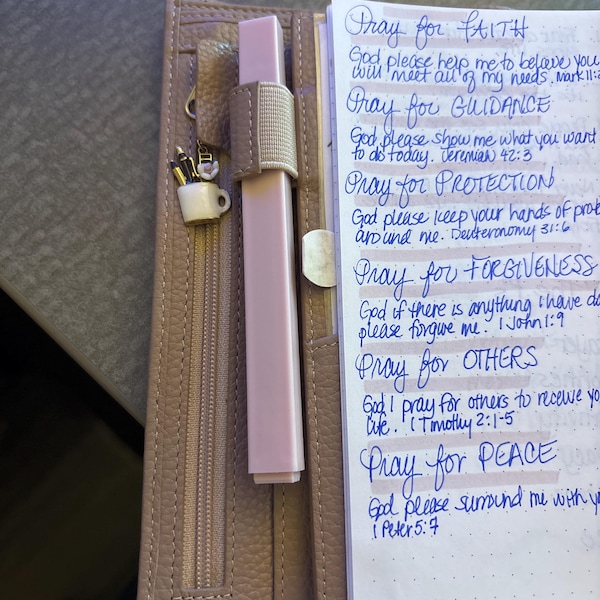 Pray for FAITH
God please help me to believe you
will meet all of my needs. Mark 11:2
Pray for GUIDANCE
God please show me what you want
to do today. Jeremiah 42:3
Pray for PROTECTION
God please keep your hands of
around me. Deuteronomy 31:6
Pray for FORGIVENESS
God if there is anything I have
please forgive me. 1 John 1:9
Pray for OTHERS
God I pray for others to receive
1 Timothy 2:1-5
Pray for PEACE
God please surround me with
1 Peter 5:7